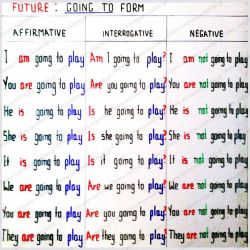 FUTURE : GOING TO FORM
AFFIRMATIVE INTERROGATIVE NEGATIVE
I am going to play Am I going to play? I am not going to play
You are going to play Are you going to play? You are not going to play
He is going to play Is he going to play? He is not going to play
She is going to play Is she going to play? She is not going to play
It is going to play Is it going to play? It is not going to play
We are going to play Are we going to play? We are not going to play
You are going to play Are you going to play? You are not going to play
They are going to play Are they going to play? They are not going to play